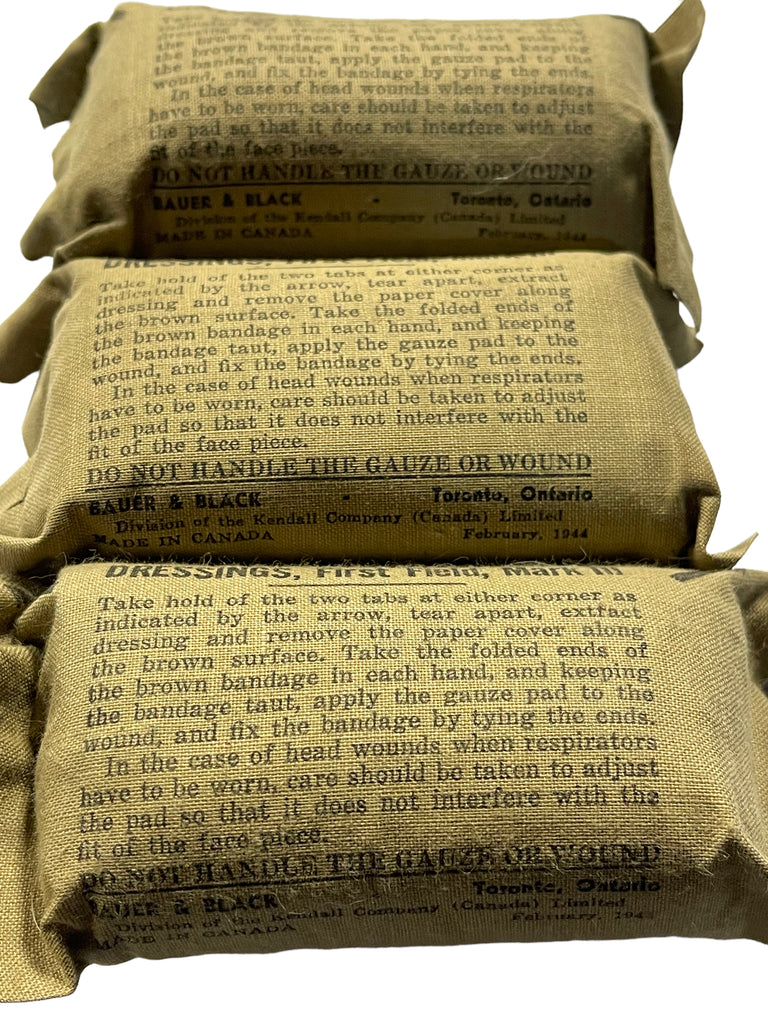 the brown surface. Take the folded ends of
the brown bandage in each hand, and keeping
the bandage taut, apply the gauze pad to the
wound, and fix the bandage by tying the ends.
In the case of head wounds when respirators
have to be worn, care should be taken to adjust
the pad so that it does not interfere with the
fit of the face piece.
DO NOT HANDLE THE GAUZE OR WOUND
BAUER & BLACK - Toronto, Ontario
Division of the Kendall Company (Canada) Limited
MADE IN CANADA February, 1944
DRESSINGS,
Take hold of the two tabs at either corner as
indicated by the arrow, tear apart, extract
dressing and remove the paper cover along
the brown surface. Take the folded ends of
the brown bandage in each hand, and keeping
the bandage taut, apply the gauze pad to the
wound, and fix the bandage by tying the ends.
In the case of head wounds when respirators
have to be worn, care should be taken to adjust
the pad so that it does not interfere with the
fit of the face piece.
DO NOT HANDLE THE GAUZE OR WOUND
BAUER & BLACK - Toronto, Ontario
Division of the Kendall Company (Canada) Limited
MADE IN CANADA February, 1944
DRESSINGS, First Field, Mark III
Take hold of the two tabs at either corner as
indicated by the arrow, tear apart, extract
dressing and remove the paper cover along
the brown surface. Take the folded ends of
the brown bandage in each hand, and keeping
the bandage taut, apply the gauze pad to the
wound, and fix the bandage by tying the ends.
In the case of head wounds when respirators
have to be worn, care should be taken to adjust
the pad so that it does not interfere with the
fit of the face piece.
DO NOT HANDLE THE GAUZE OR WOUND
BAUER & BLACK - Toronto, Ontario
Division of the Kendall Company (Canada) Limited
MADE IN CANADA February, 194